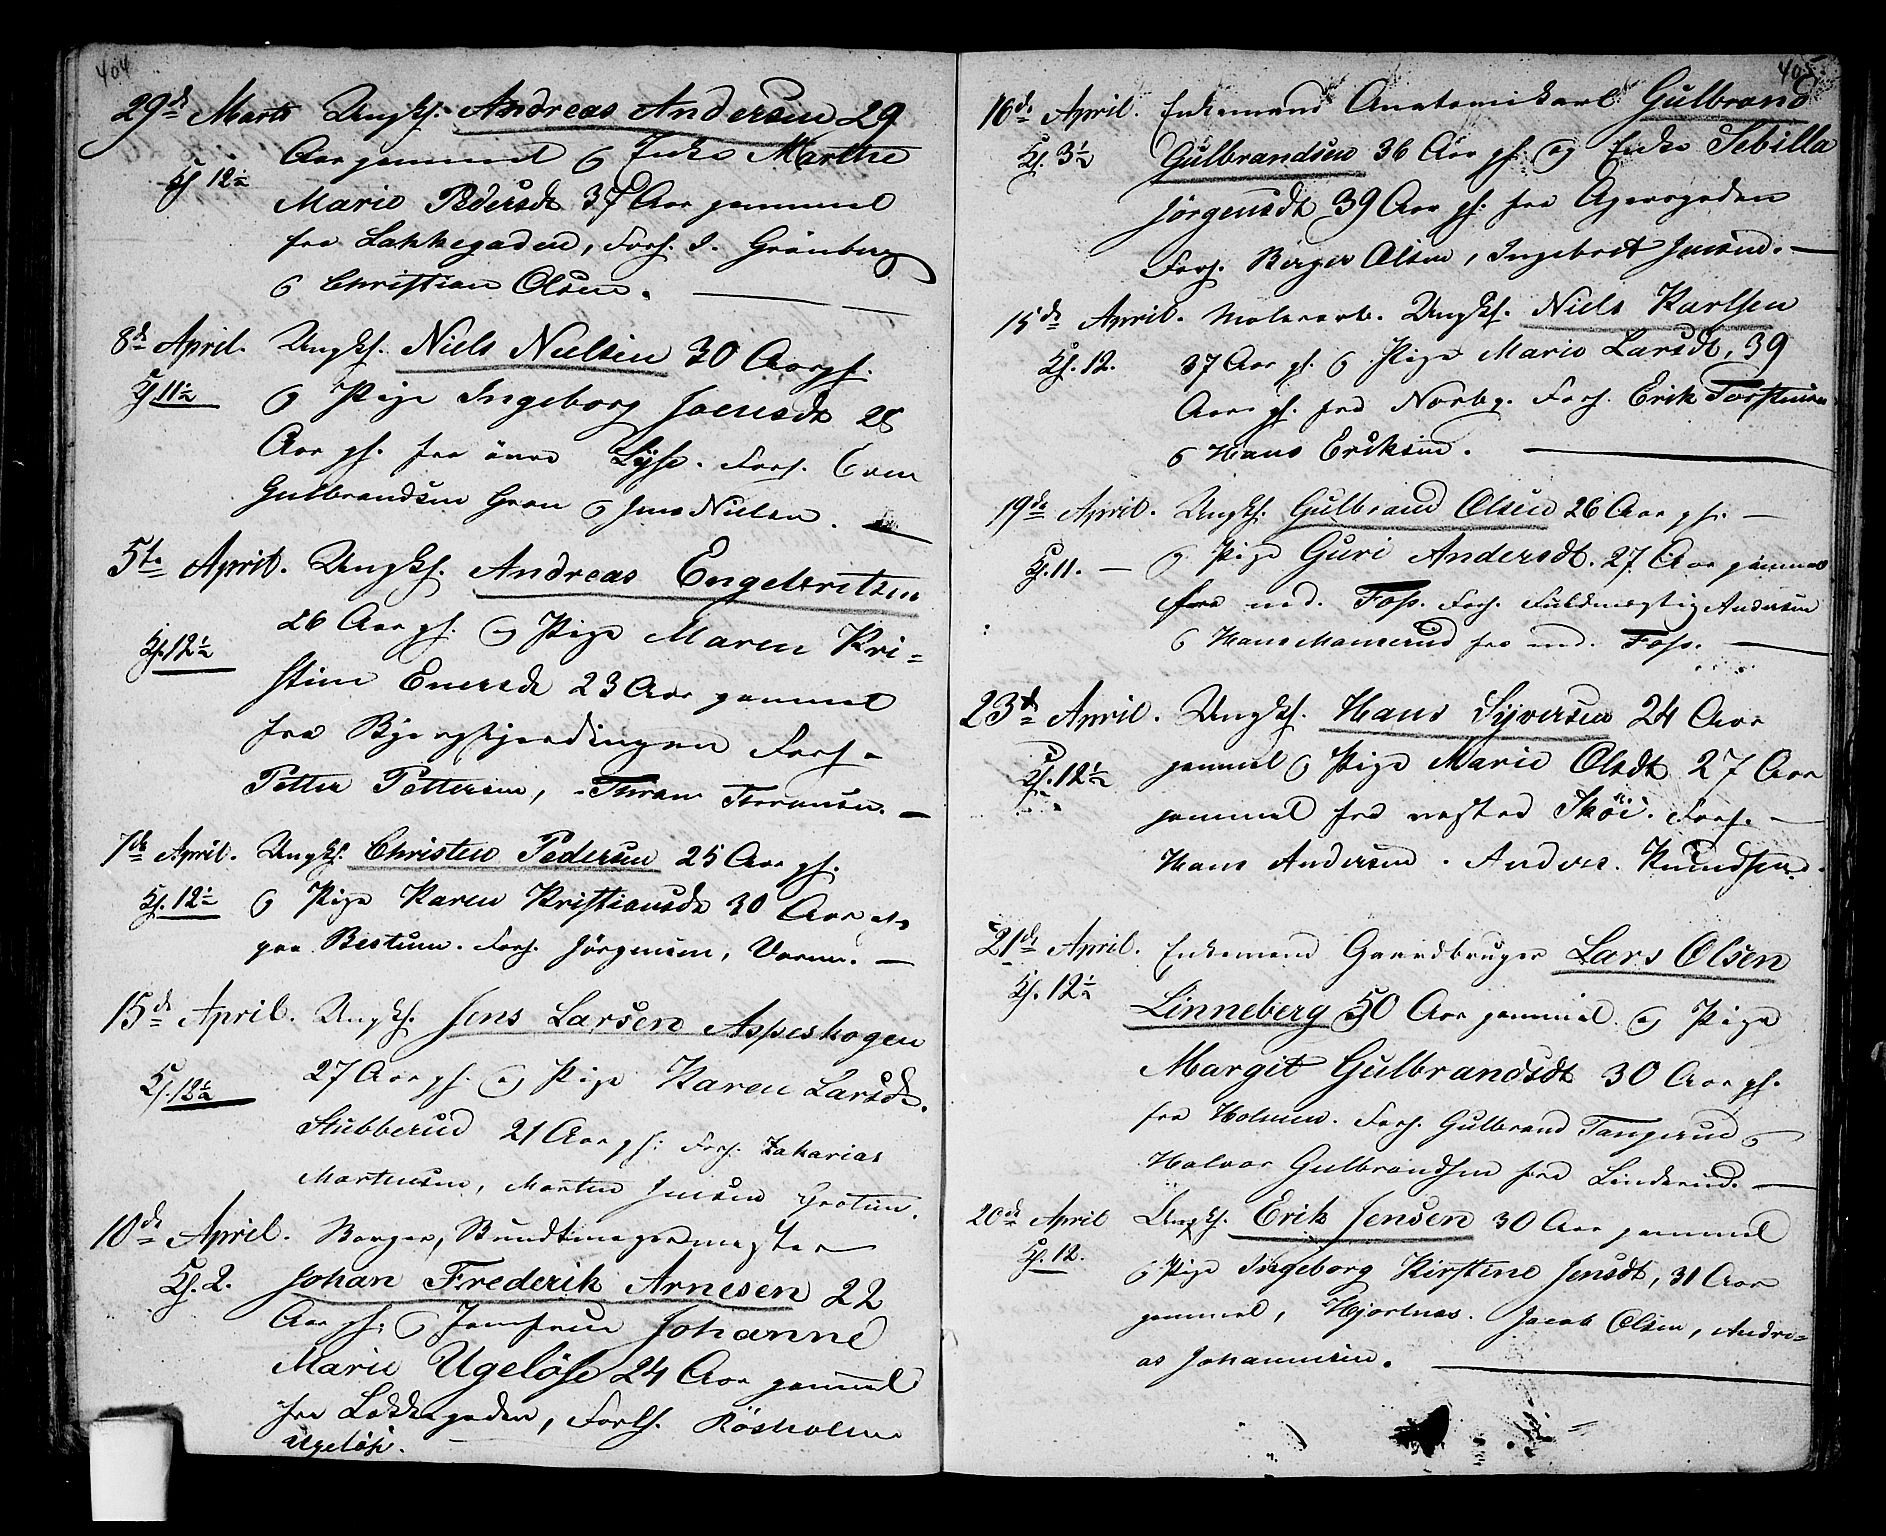 404
29de Marts Ungks. Andreas Andersen 29
Aar gammel & Enke Marthe
Kl 12½
Marie Pedersdt 37 Aar gammel
fra Lakkegaden, Forl. I. Grönberg
& Christian Olsen.
8de April. Ungks. Niels Nielsen 30 Aar gl.
Kl 11½ & Pige Ingeborg Joensdt 28
Aar gl. fra övre Lyse. Forl. Even
Gulbrandsen Gran & Jens Nielsen.
5te April. Ungks. Andreas Engebretsen
26 Aar gl. og Pige Maren Kri=
Kl. 12½
stine Enersdt 23 Aar gammel
fra Bjergfjerdingen Forl.
Petter Pettersen, Thran Thransen.
7de April. Ungks. Christen Pedersen 25 Aar gl.
Kl. 12½ & Pige Karen Kristiansdt 30 Aar
paa Bestum. Forl. Jörgensen,
15de April. Ungks. Jens Larsen Aspeskogen
27 Aar gl. og Pige Karen Larsdt.
Kl. 12½
Stubberud 21 Aar gl: Forl. Zakarias
Mortensen, Morten Jensen
10de April. Borger, Bundtmagermester
Kl. 2. Johan Frederik Arnesen 22
Aar gl: & Jomfrue Johanne
Marie Ugelöse 24 Aar gammel
fra Lakkegaden, Forl. Rösholm
Ugelöse.
405
16de April. Enkemand Anatomikarl Gulbrand
Kl. 3½ Gulbrandsen 36 Aar gl. og Enke Sebilla
Jörgensdt 39 Aar gl. fra Agersgaden
Forl. Berger Olsen, Ingebret Jensen.
15de April. Malerarb. Ungks. Niels Karlsen
Kl. 12. 37 Aar gl. & Pige Marie Larsdt, 39
Aar gl. fra Norbg. Forl. Erik Torstensen
& Hans Eriksen.
19de April. Ungks. Gulbrand Olsen 26 Aar gl.
Kl. 11. & Pige Guri Andersdt. 27 Aar gammel
fra nd. Foss. Forl. Fuldmegtig Andersen
& Hans Mamerud fra nd. Foss.
23de April. Ungks. Hans Syversen 24 Aar
Kl. 12½ gammel & Pige Marie Olsdt 27 Aar
gammel fra vestre Skøi. Forl.
Hans Andersen. Andres. Knudsen.
21de April. Enkemand Gaardbruger Lars Olsen
Kl. 12½ Linneberg 50 Aar gammel og Pige
Margit Gulbrandsdt 30 Aar gl.
fra Holmen. Forl. Gulbrand Tangerud &
Halvor Gulbrandsen fra Linderud.
20de April Ungks. Erik Jensen 30 Aar gammel
Kl. 12. & Pige Ingeborg Kirstine Jensdt, 31 Aar
gammel, Hjortnes. Jacob Olsen, Andre=
as Johannesen.